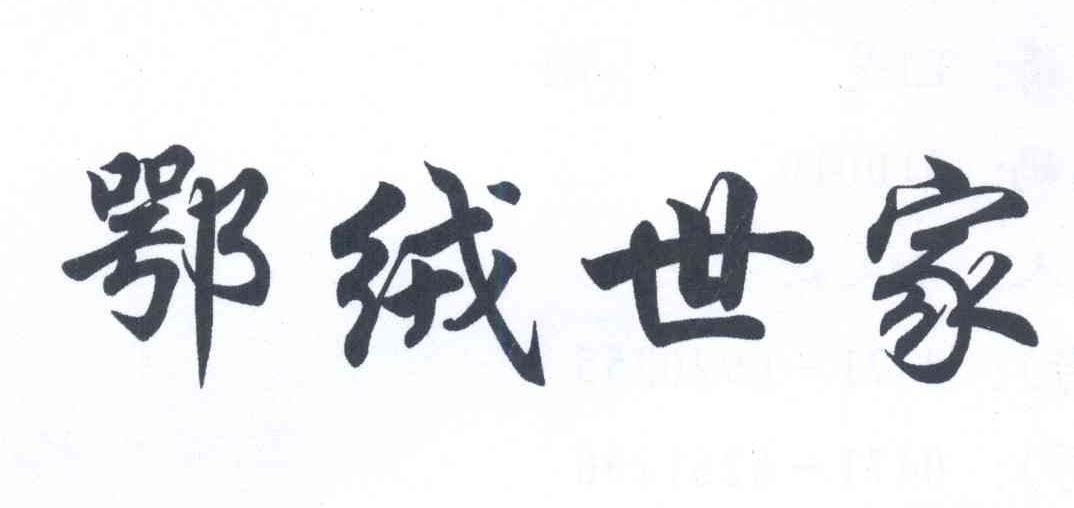 鄂绒世家